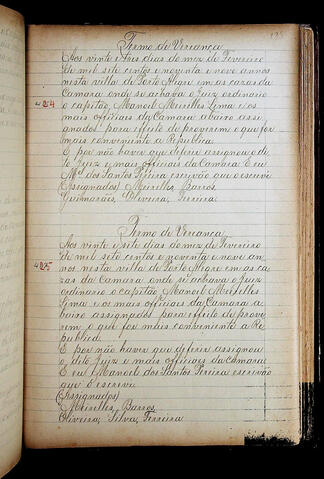 195
Termo de Veriança
Aos vinte e tres dias do mez de Fevereiro
de mil sete centos e noventa e nove annos
nesta villa de Porto Alegre em as cazas da
Camara onde se achava o Juiz ordenario
424 o capitão Manoel Meirelles Lima e os
mais officiaes da Camara abaixo assi-
gnados para effeito de proverem o que for
mais conveniente a Republica.
E por não haver que deferir assignou o di-
to Juiz e mais officiaes da Camara E eu
Mel dos Santos Pereira escrivão que o escrevi
(Assignados) Meirelles, Barros,
Guimarães, Oliveira, Ferreira.
Termo de Veriança
Aos vinte e sete dias do mez de Fevereiro
de mil sete centos e noventa e nove an-
425 nos nesta villa de Porto Alegre em as ca-
zas da Camara onde se achava o Juiz
ordinario o capitão Manoel Meirelles
Lima e os mais officiaes da Camara a-
baixo assignados para effeito de prove-
rem o que for mais conveniente a Re-
publica.
E por não haver que deferir assignou
o dito Juiz e mais officiaes da Camara
E eu Manoel dos Santos Pereira escrivão
que o escrevi
(Assignados)
Meirelles, Barros
Oliveira, Silva, Ferreira